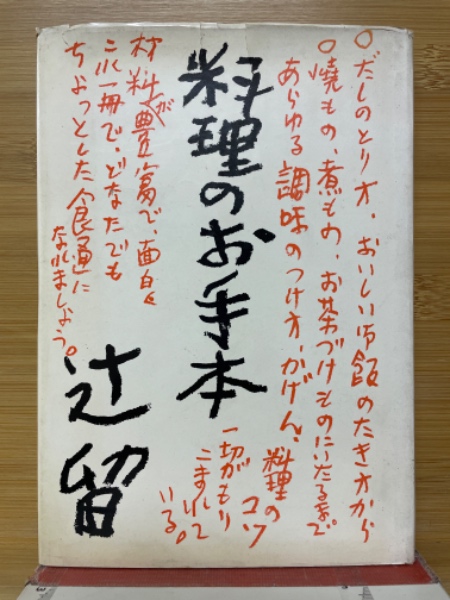 ○だしのとり方、おいしい御飯のたき方から
○焼もの、煮もの、お茶づけものにいたるまで。
あらゆる調味のつけ方、かげん、
料理のコツ
一切がもり
こまれて
いる。
料理のお手本
辻留
材料が豊富で、面白く
これ一冊で、どなたでも
ちょっとした食通に
なれましょう。